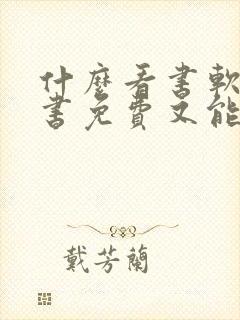 什麼看書軟
書免費又能
戴芳蘭